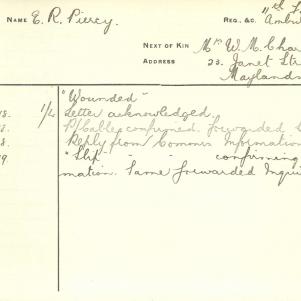 NAME E. R. Piercy
11th F
REG. &C. Ambu
NEXT OF KIN Mr W. M. Char
ADDRESS 23. Janet Str
Maylands
"Wounded"
8. 1/4 Letter acknowledged.
Pbable confirmed. Forwarded
8. Reply from Comms Information
9 "Slip" - - confirming
mation. Same forwarded Inqui